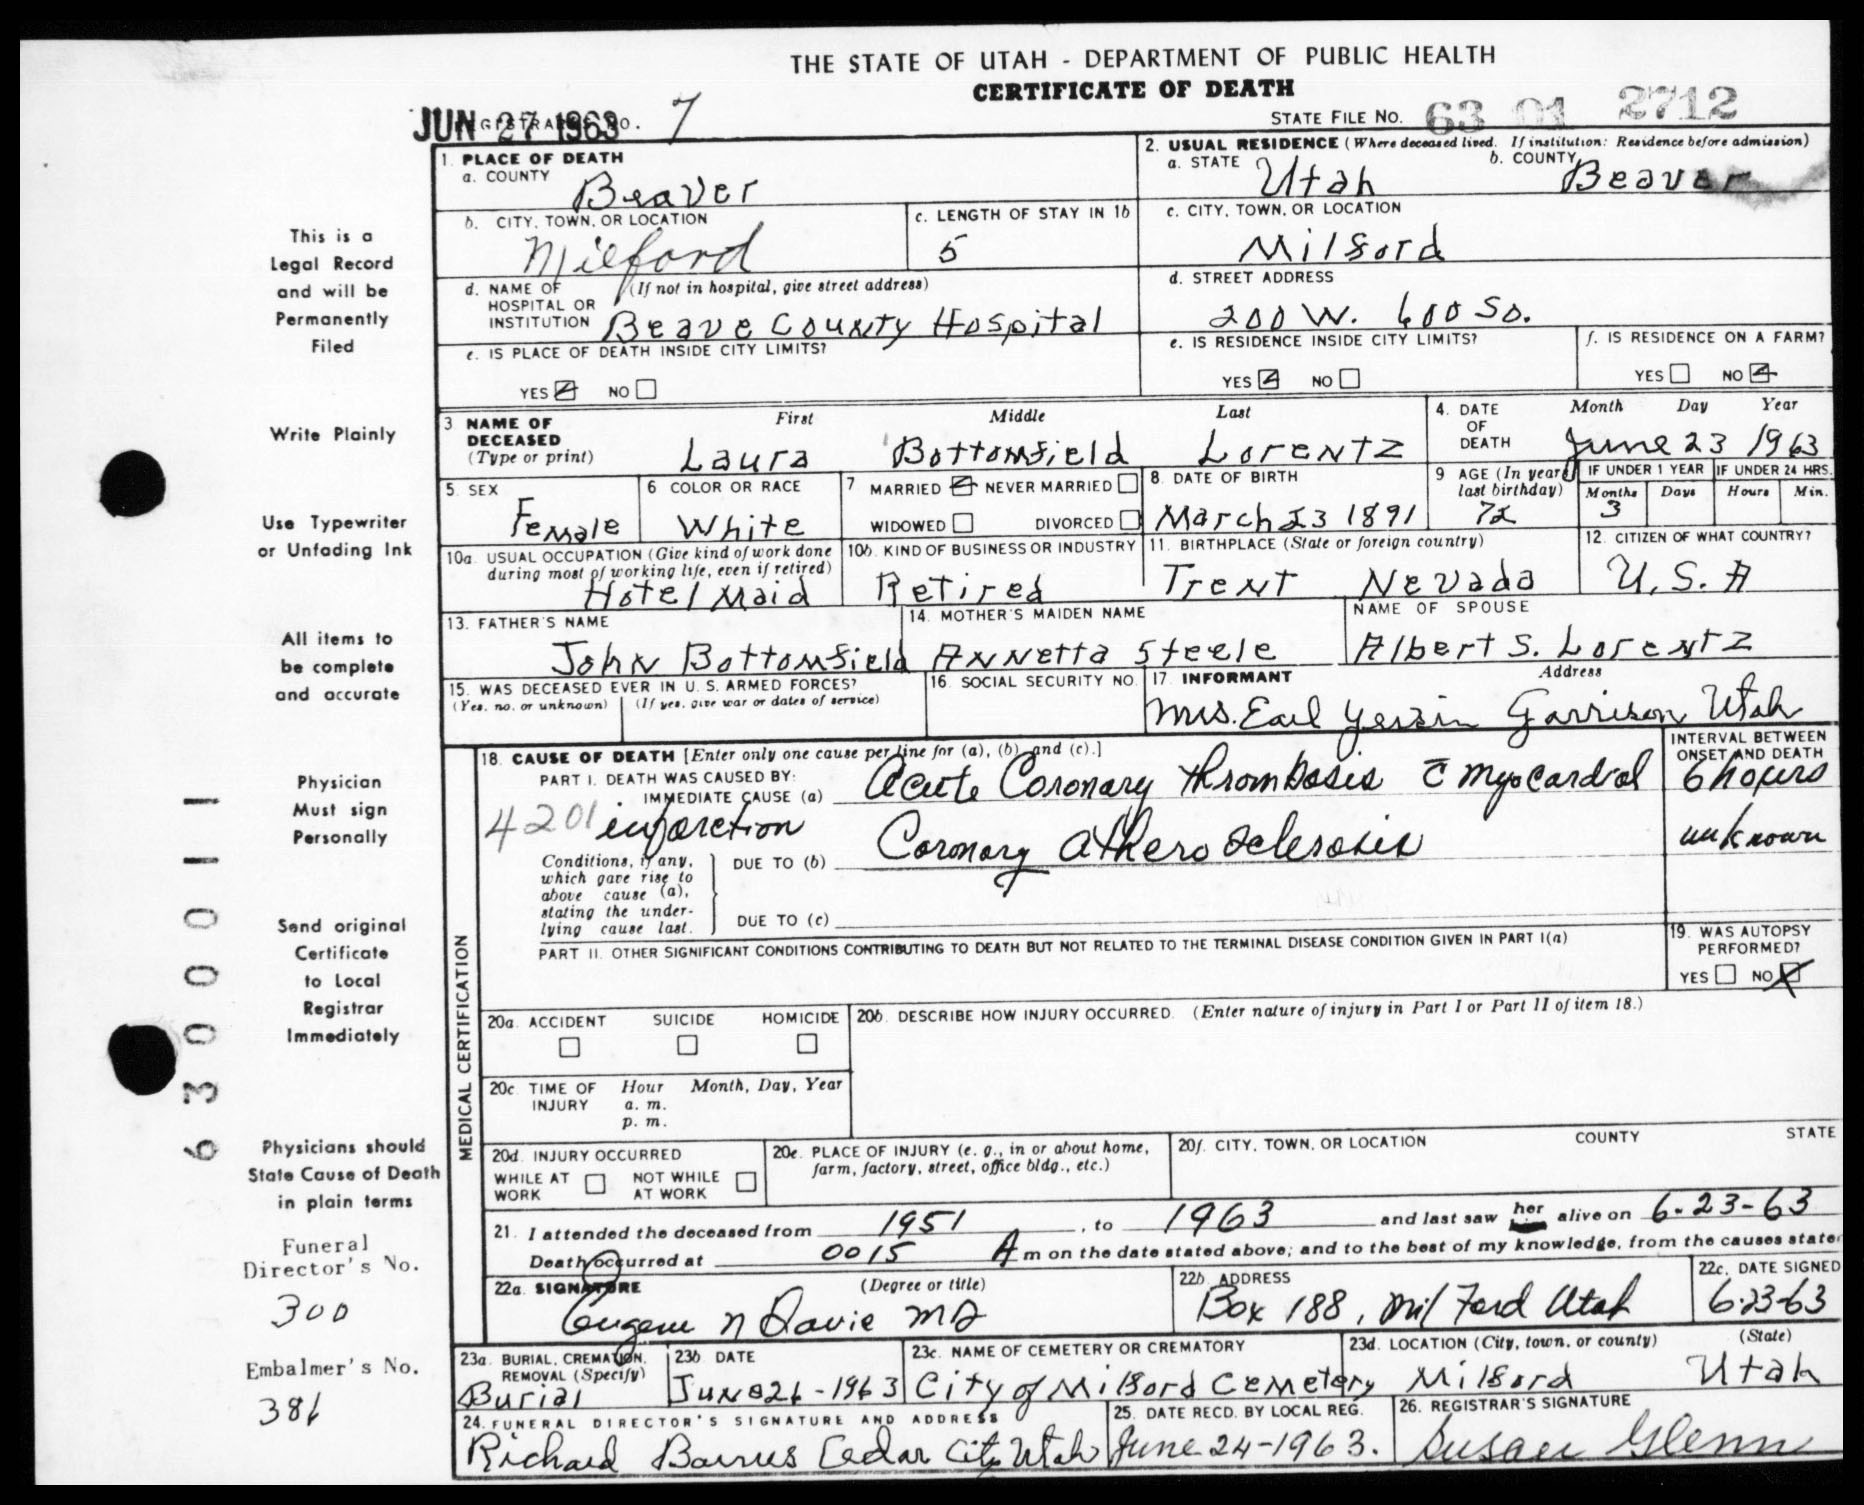 THE STATE OF UTAH - DEPARTMENT OF PUBLIC HEALTH
CERTIFICATE OF DEATH
JUN 27 1963 7
STATE FILE NO. 63 01 2712
1. PLACE OF DEATH
a. COUNTY
Beaver
2. USUAL RESIDENCE (Where deceased lived. If institution: Residence before admission)
a. STATE Utah b. COUNTY Beaver
b. CITY, TOWN, OR LOCATION
Milford
c. LENGTH OF STAY IN 1b
5
c. CITY, TOWN, OR LOCATION
Milford
d. NAME OF (If not in hospital, give street address)
HOSPITAL OR
INSTITUTION Beave County Hospital
d. STREET ADDRESS
200 W. 600 So.
e. IS PLACE OF DEATH INSIDE CITY LIMITS?
YES NO
e. IS RESIDENCE INSIDE CITY LIMITS?
YES NO
f. IS RESIDENCE ON A FARM?
YES NO
3 NAME OF DECEASED
(Type or print)
First Middle Last
Laura Bottomfield Lorentz
4. DATE OF DEATH
Month Day Year
June 23 1963
5. SEX
Female
6 COLOR OR RACE
White
7 MARRIED NEVER MARRIED
WIDOWED DIVORCED
8. DATE OF BIRTH
March 23 1891
9 AGE (In years last birthday)
72
IF UNDER 1 YEAR IF UNDER 24 HRS.
Months Days Hours Min.
3
10a. USUAL OCCUPATION (Give kind of work done
during most of working life, even if retired)
Hotel Maid
10b. KIND OF BUSINESS OR INDUSTRY
Retired
11. BIRTHPLACE (State or foreign country)
Trent Nevada
12. CITIZEN OF WHAT COUNTRY?
U.S.A
13. FATHER'S NAME
John Bottomfield
14. MOTHER'S MAIDEN NAME
Annetta Steele
NAME OF SPOUSE
Albert S. Lorentz
15. WAS DECEASED EVER IN U. S. ARMED FORCES?
(Yes, no, or unknown) (If yes, give war or dates of service)
16. SOCIAL SECURITY NO.
17. INFORMANT Address
Mrs. Earl Garrison, Utah
18. CAUSE OF DEATH [Enter only one cause per line for (a), (b), and (c).]
INTERVAL BETWEEN
ONSET AND DEATH
PART I. DEATH WAS CAUSED BY:
IMMEDIATE CAUSE (a) Acute Coronary Thrombosis c̄ myocardial 6 hours
4201 infarction
Conditions, if any,
which gave rise to
above cause (a),
stating the under-
lying cause last.
DUE TO (b) Coronary Atherosclerosis unknown
DUE TO (c)
PART II. OTHER SIGNIFICANT CONDITIONS CONTRIBUTING TO DEATH BUT NOT RELATED TO THE TERMINAL DISEASE CONDITION GIVEN IN PART I(a)
19. WAS AUTOPSY
PERFORMED?
YES NO
MEDICAL CERTIFICATION
20a. ACCIDENT SUICIDE HOMICIDE
20b. DESCRIBE HOW INJURY OCCURRED. (Enter nature of injury in Part I or Part II of item 18.)
20c. TIME OF INJURY Hour Month, Day, Year
a. m.
p. m.
20d. INJURY OCCURRED
WHILE AT WORK NOT WHILE AT WORK
20e. PLACE OF INJURY (e. g., in or about home,
farm, factory, street, office bldg., etc.)
20f. CITY, TOWN, OR LOCATION COUNTY STATE
21. I attended the deceased from 1951, to 1963 and last saw her alive on 6-23-63
Death occurred at 0015 A m on the date stated above; and to the best of my knowledge, from the causes state
22a. SIGNATURE (Degree or title)
Eugene N Davie MD
22b. ADDRESS
Box 188, Milford Utah
22c. DATE SIGNED
6-23-63
23a. BURIAL, CREMATION,
REMOVAL (Specify)
Burial
23b. DATE
June 26-1963
23c. NAME OF CEMETERY OR CREMATORY
City of Milford Cemetery
23d. LOCATION (City, town, or county) (State)
Milford Utah
24. FUNERAL DIRECTOR'S SIGNATURE AND ADDRESS
Richard Barrus Cedar City Utah
25. DATE RECD. BY LOCAL REG.
June 24-1963.
26. REGISTRAR'S SIGNATURE
Susan Glenn
This is a
Legal Record
and will be
Permanently
Filed
Write Plainly
Use Typewriter
or Unfading Ink
All items to
be complete
and accurate
Physician
Must sign
Personally
Send original
Certificate
to Local
Registrar
Immediately
Physicians should
State Cause of Death
in plain terms
Funeral
Director's No.
300
Embalmer's No.
386
6 3 0 0 0 1 1